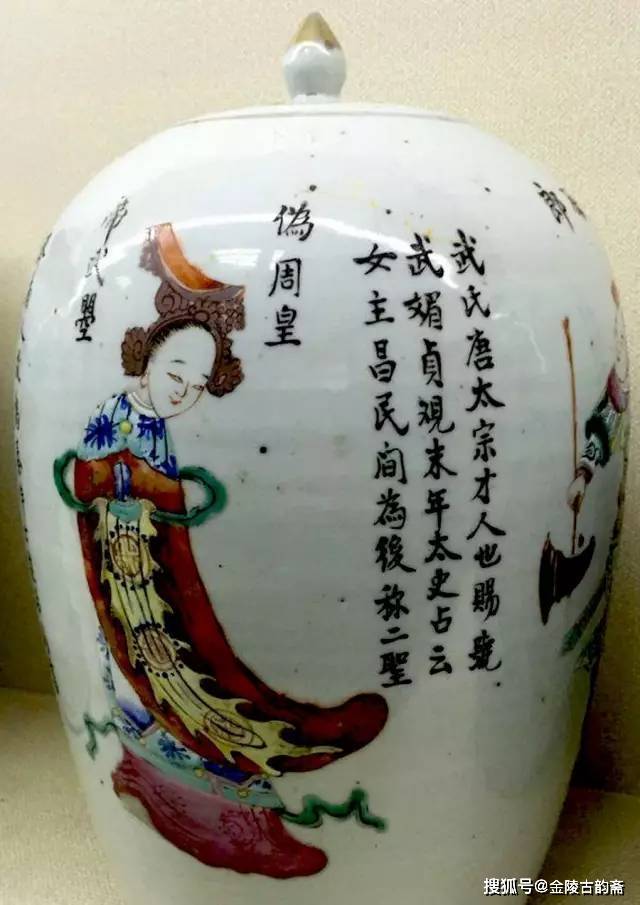 郎
武氏唐太宗才人也賜號
武媚貞覌末年太史占云
女主昌民間為後称二聖
偽周皇
帝武曌
搜狐号@金陵古韵斋